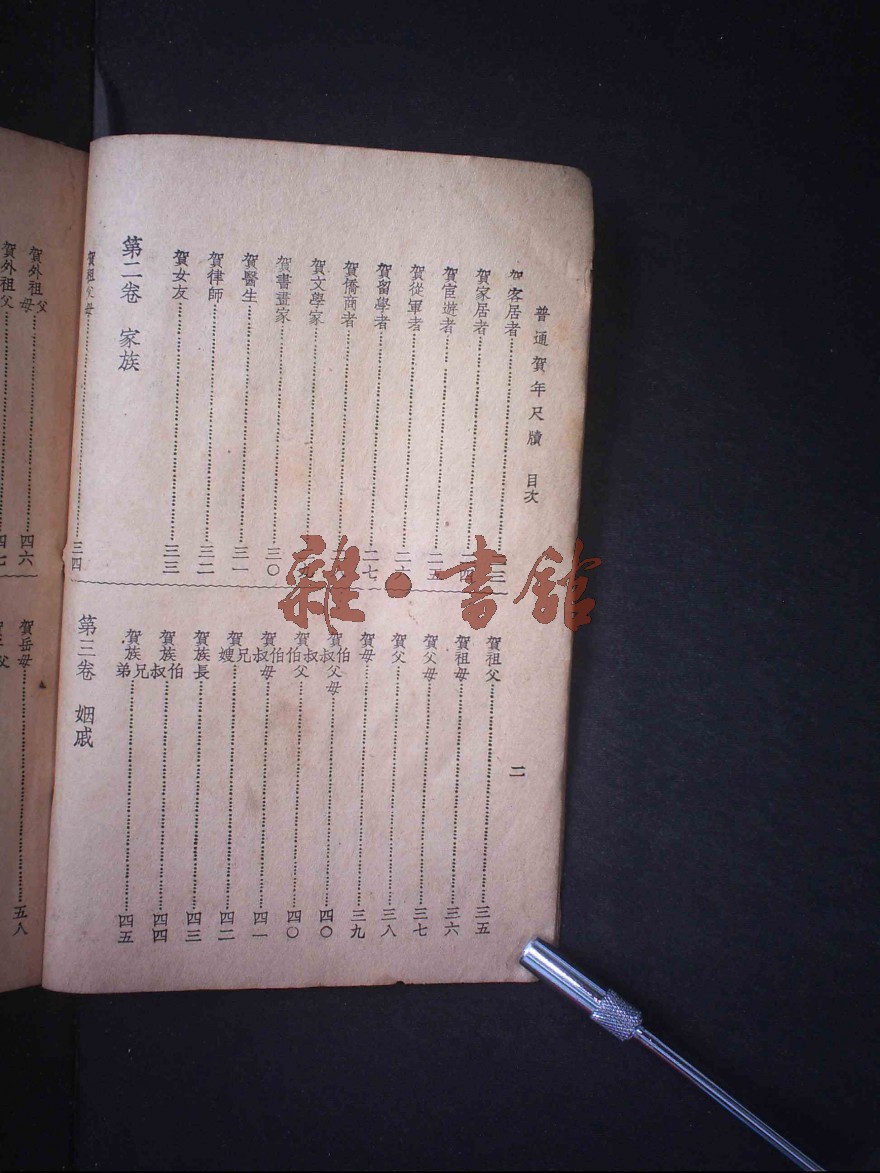 普通賀年尺牘 目次
二
賀客居者 二三
賀家居者 二四
賀宦遊者 二五
賀從軍者 二六
賀留學者 二七
賀僑商者
賀文學家 九
賀書畫家 三〇
賀醫生 三一
賀律師 三二
賀女友 三三
第二卷 家族
賀祖父母 三四
賀祖父 三五
賀祖母 三六
賀父母 三七
賀父 三八
賀母 三九
賀伯叔父母 四〇
賀伯叔父 四〇
賀伯叔母 四一
賀兄嫂 四二
賀族長 四三
賀族伯叔 四四
賀族兄弟 四五
第三卷 姻戚
賀外祖父母 四六
賀外祖父 四七
賀岳母 五八
雜·書館